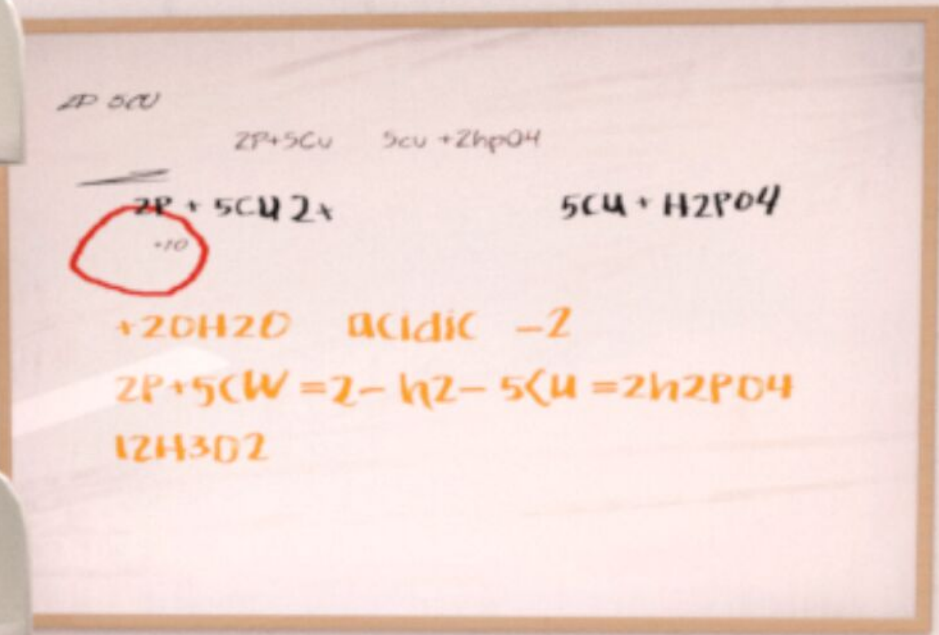 2P 5CU
2P+5Cu 5cu +2hpO4
2P + 5CU 2+ 5CU + H2PO4
+10
+20H2O acidic -2
2P+5CW =2- h2- 5CU =2h2PO4
12H3O2